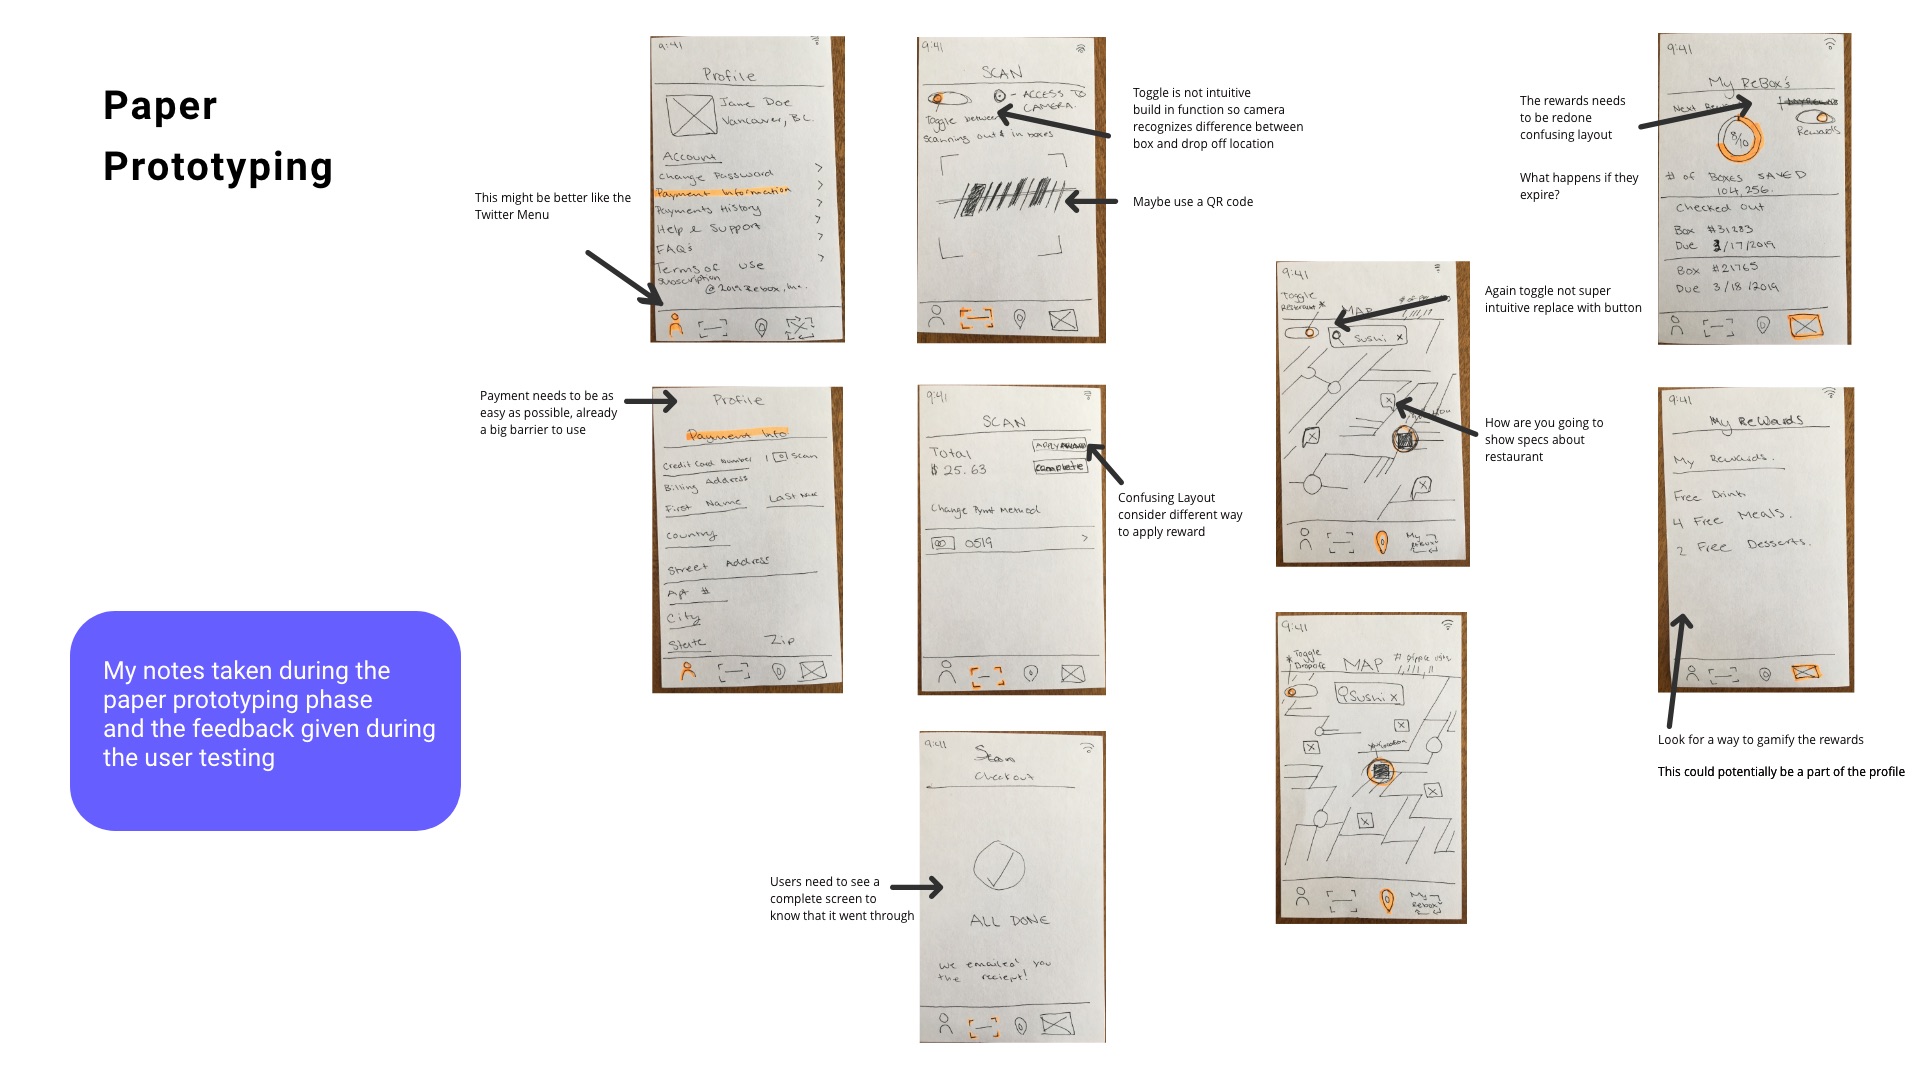 Paper
Prototyping
My notes taken during the
paper prototyping phase
and the feedback given during
the user testing
This might be better like the
Twitter Menu
9:41
Profile
Jane Doe
Vancouver, BC.
Account
Change Password
Payment Information
Payments History
Help & Support
FAQs
Terms of use
Subscription
@2019 Rebox, Inc.
Payment needs to be as
easy as possible, already
a big barrier to use
Profile
Payment Info
Credit Card Number
Scan
Billing Address
First Name
Last Name
Country
Street Address
Apt #
City
State
Zip
9:41
SCAN
- ACCESS TO
CAMERA.
Toggle between
scanning out & in boxes
Toggle is not intuitive
build in function so camera
recognizes difference between
box and drop off location
Maybe use a QR code
9:41
SCAN
Total
$ 25.63
APPLY
complete
Change Pymt Method
0519
>
Confusing Layout
consider different way
to apply reward
Users need to see a
complete screen to
know that it went through
9:41
Scan
Checkout
ALL DONE
we emailed you
the reciept!
9:41
Toggle
Restaurant *
MAP
Sushi x
My
Rebox
Again toggle not super
intuitive replace with button
How are you going to
show specs about
restaurant
9:41
* Toggle
Dropoff
MAP
Sushi x
My
Rebox
The rewards needs
to be redone
confusing layout
What happens if they
expire?
9:41
My ReBox's
Next
Rewards
8/10
# of Boxes SAVED
104,256.
Checked out
Box #31283
Due 3/17/2019
Box #21765
Due 3/18/2019
9:41
My ReWards
My Rewards.
Free Drink
4 Free Meals.
2 Free Desserts.
Look for a way to gamify the rewards
This could potentially be a part of the profile